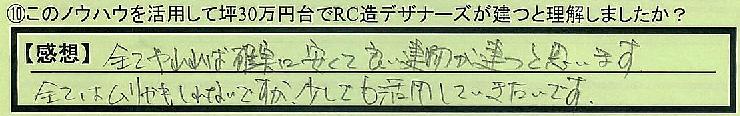 ⑩このノウハウを活用して坪30万円台でRC造デザナーズが建つと理解しましたか？
【感想】全てやれれば確実に安くて良い建物が建つと思います
全てはムリかもしれないですが、少しでも活用していきたいです。